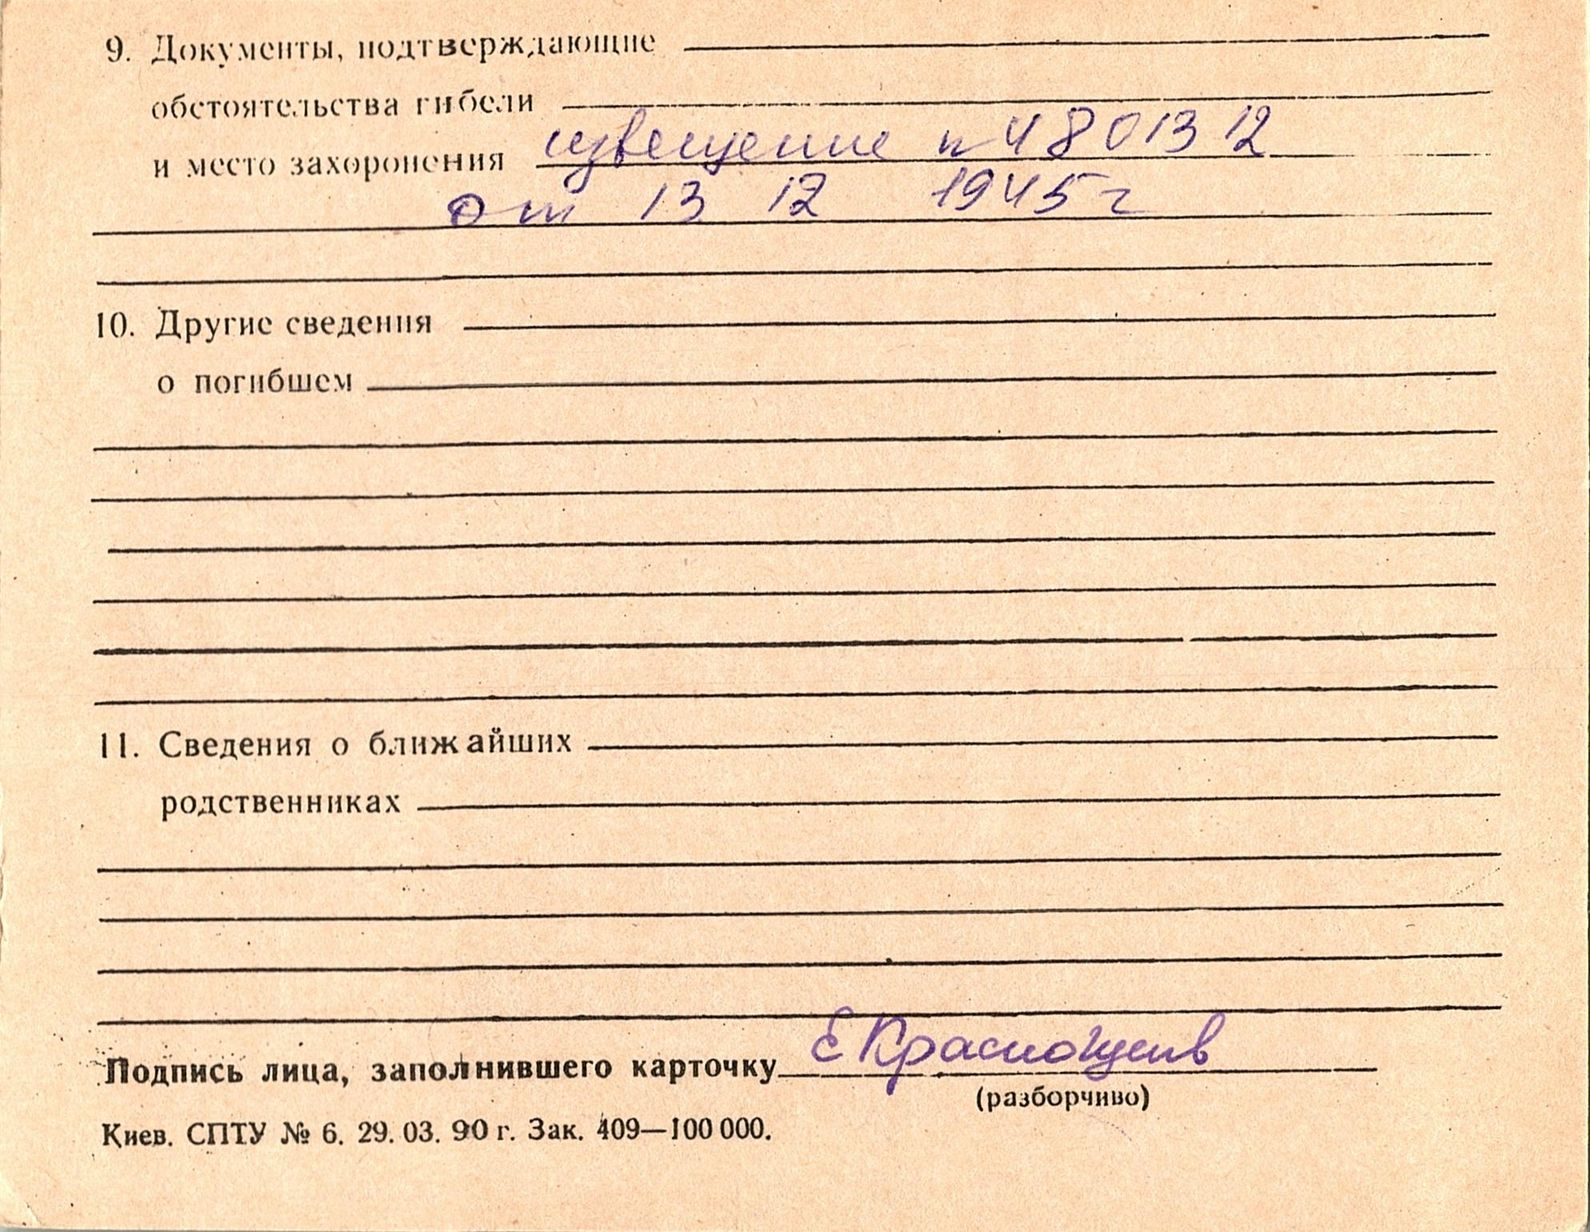 9. Документы, подтверждающие
обстоятельства гибели
и место захоронения извещение n 4801312
от 13 12 1945 г
10. Другие сведения
о погибшем
11. Сведения о ближайших
родственниках
Подпись лица, заполнившего карточку Е
(разборчиво)
Киев. СПТУ № 6. 29. 03. 90 г. Зак. 409—100 000.